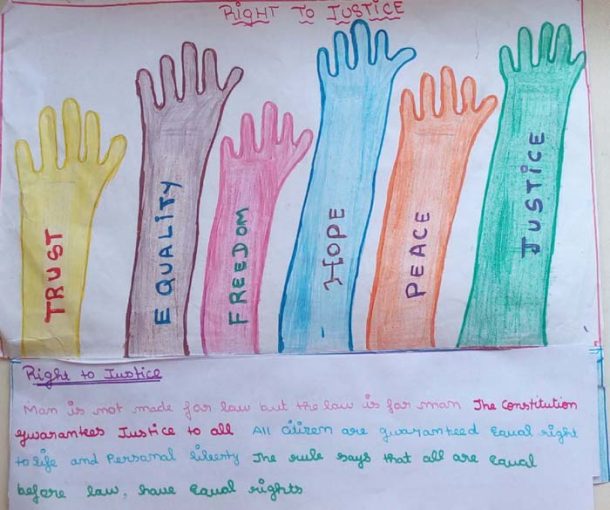 RIGHT TO JUSTICE
TRUST
EQUALITY
FREEDOM
HOPE
PEACE
JUSTICE
Right to Justice
Man is not made for law but the law is for man The Constitution
guarantees Justice to all All citizen are guaranteed Equal right
to life and Personal liberty The rule says that all are Equal
before law, have Equal rights